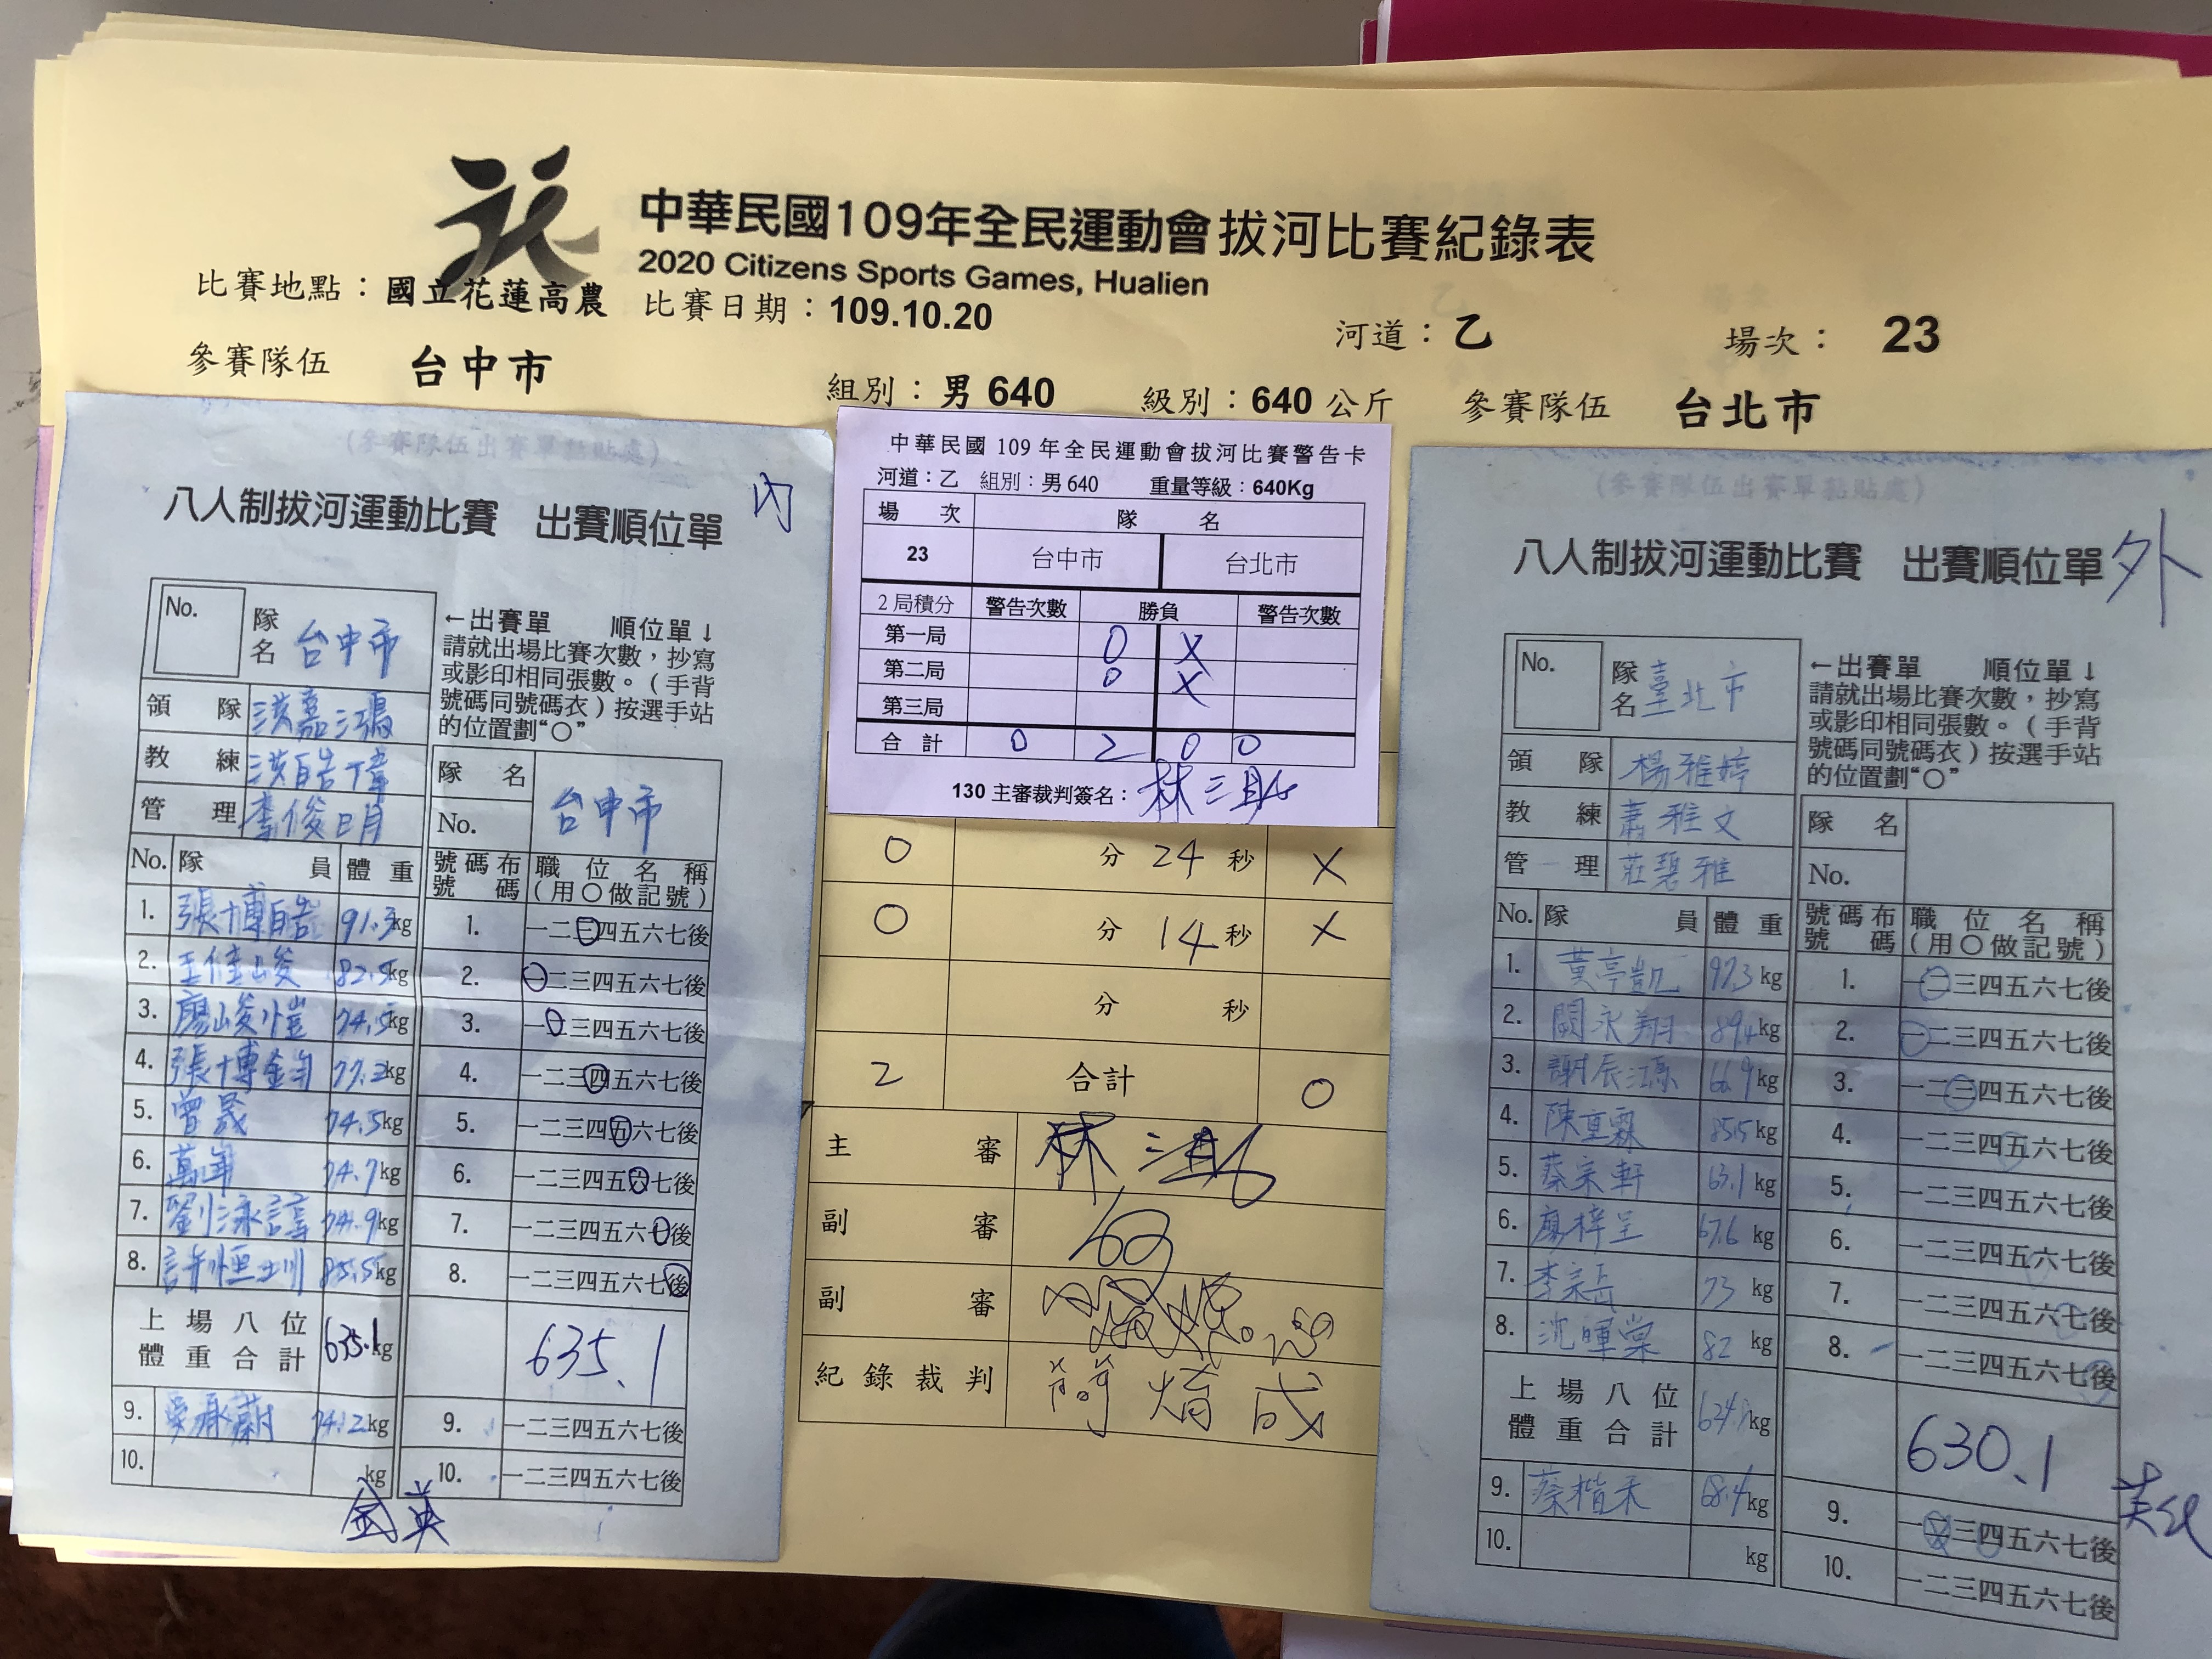 中華民國109年全民運動會拔河比賽紀錄表
2020 Citizens Sports Games, Hualien
比賽地點：國立花蓮高農 比賽日期：109.10.20 河道：乙 場次： 23
參賽隊伍 台中市 組別：男 640 級別：640 公斤 參賽隊伍 台北市
(參賽隊伍出賽單黏貼處)
內
八人制拔河運動比賽 出賽順位單
No. 隊名 台中市
←出賽單 順位單↓
請就出場比賽次數，抄寫
或影印相同張數。（手背
號碼同號碼衣）按選手站
的位置劃“〇”
領隊 洪嘉鴻
教練 洪皓偉
管理 李俊明
隊名 台中市
No.
No. 隊員 體重 號碼布號碼 職位名稱（用〇做記號）
1. 張博皓 91.3kg 1. 一二三四五六七後
2. 王佳峻 82.5kg 2. 一二三四五六七後
3. 廖峻愷 74.5kg 3. 一二三四五六七後
4. 張博鈞 77.2kg 4. 一二三四五六七後
5. 曾晟 74.5kg 5. 一二三四五六七後
6. 萬年 74.7kg 6. 一二三四五六七後
7. 劉泳諄 74.9kg 7. 一二三四五六七後
8. 許恒圳 85.5kg 8. 一二三四五六七後
上場八位體重合計 635.1kg 635.1
9. 74.2kg 9. 一二三四五六七後
10. kg 10. 一二三四五六七後
金英
中華民國 109 年全民運動會拔河比賽警告卡
河道：乙 組別：男 640 重量等級：640Kg
場次 隊名
23 台中市 台北市
2 局積分 警告次數 勝負 警告次數
第一局 O X
第二局 O X
第三局
合計 0 2 0 0
130 主審裁判簽名：林
O 分 24 秒 X
O 分 14 秒 X
分 秒
2 合計 0
主審 林
副審
副審
紀錄裁判 簡 成
(參賽隊伍出賽單黏貼處)
外
八人制拔河運動比賽 出賽順位單
No. 隊名 臺北市
←出賽單 順位單↓
請就出場比賽次數，抄寫
或影印相同張數。（手背
號碼同號碼衣）按選手站
的位置劃“〇”
領隊 楊雅婷
教練 蕭雅文
管理 莊碧雅
隊名
No.
No. 隊員 體重 號碼布號碼 職位名稱（用〇做記號）
1. 黃亭凱 97.3 kg 1. 一二三四五六七後
2. 闕永翔 89.4kg 2. 一二三四五六七後
3. 謝辰鴻 66.9kg 3. 一二三四五六七後
4. 陳重霖 85.5kg 4. 一二三四五六七後
5. 蔡宗軒 63.1 kg 5. 一二三四五六七後
6. 廖梓呈 67.6 kg 6. 一二三四五六七後
7. 李宗岳 73 kg 7. 一二三四五六七後
8. 沈暉棠 82 kg 8. 一二三四五六七後
上場八位體重合計 kg 630.1
9. 蔡楷禾 68.4kg 9. 一二三四五六七後
10. kg 10. 一二三四五六七後